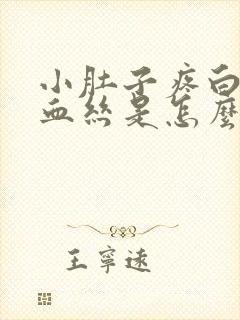 小肚子疼白
血丝是怎麼
王寧遠